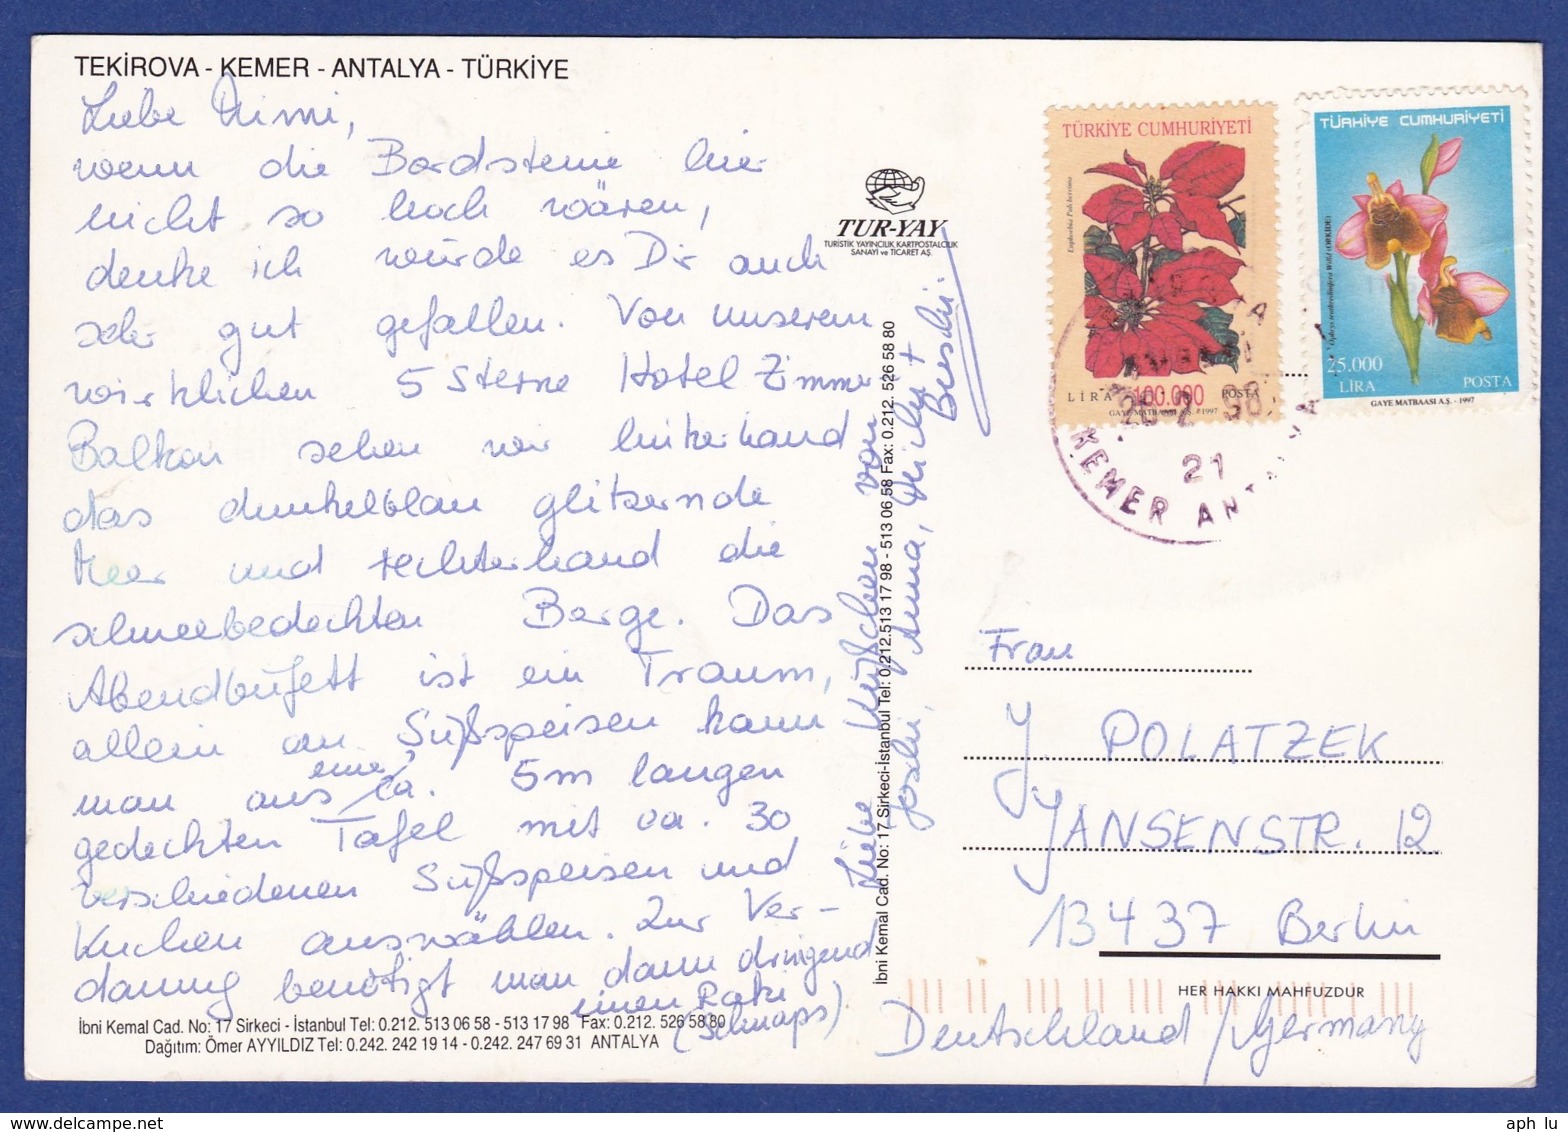 TEKİROVA - KEMER - ANTALYA - TÜRKİYE
Liebe Mimi,
wenn die Bordsteine hier
nicht so hoch wären,
denke ich würde es Dir auch
sehr gut gefallen. Von unserem
wirklichen 5 Sterne Hotel Zimmer
Balkon sehen wir linkerhand
das dunkelblau glitzernde
Meer und rechterhand die
schneebedeckten Berge. Das
Abendbüfett ist ein Traum,
allein an Süßspeisen kann
man aus einer ca. 5m langen
gedeckten Tafel mit ca. 30
verschiedenen Süßspeisen und
Kuchen auswählen. Zur Ver-
dauung benötigt man dann dringend
einen Raki
(Schnaps).
İbni Kemal Cad. No: 17 Sirkeci - İstanbul Tel: 0.212. 513 06 58 - 513 17 98 Fax: 0.212. 526 58 80
Dağıtım: Ömer AYYILDIZ Tel: 0.242. 242 19 14 - 0.242. 247 69 31 ANTALYA
Liebe Küßchen von
Anna,
İbni Kemal Cad. No: 17 Sirkeci-İstanbul Tel: 0.212.513 17 98 - 513 06 58 Fax: 0.212. 526 58 80
TUR-YAY
TURİSTİK YAYINCILIK KARTPOSTALCILIK
SANAYİ ve TİCARET AŞ.
TÜRKİYE CUMHURİYETİ
Euphorbia Pulcherrima
LİRA 100.000 POSTA
GAYE MATBAASI A.Ş. - 1997
TÜRKİYE CUMHURİYETİ
(ORKİDE)
25.000
LİRA POSTA
GAYE MATBAASI A.Ş. - 1997
21
KEMER
Frau
Y POLATZEK
YANSENSTR. 12
13437 Berlin
HER HAKKI MAHFUZDUR
Deutschland / Germany
aph lu